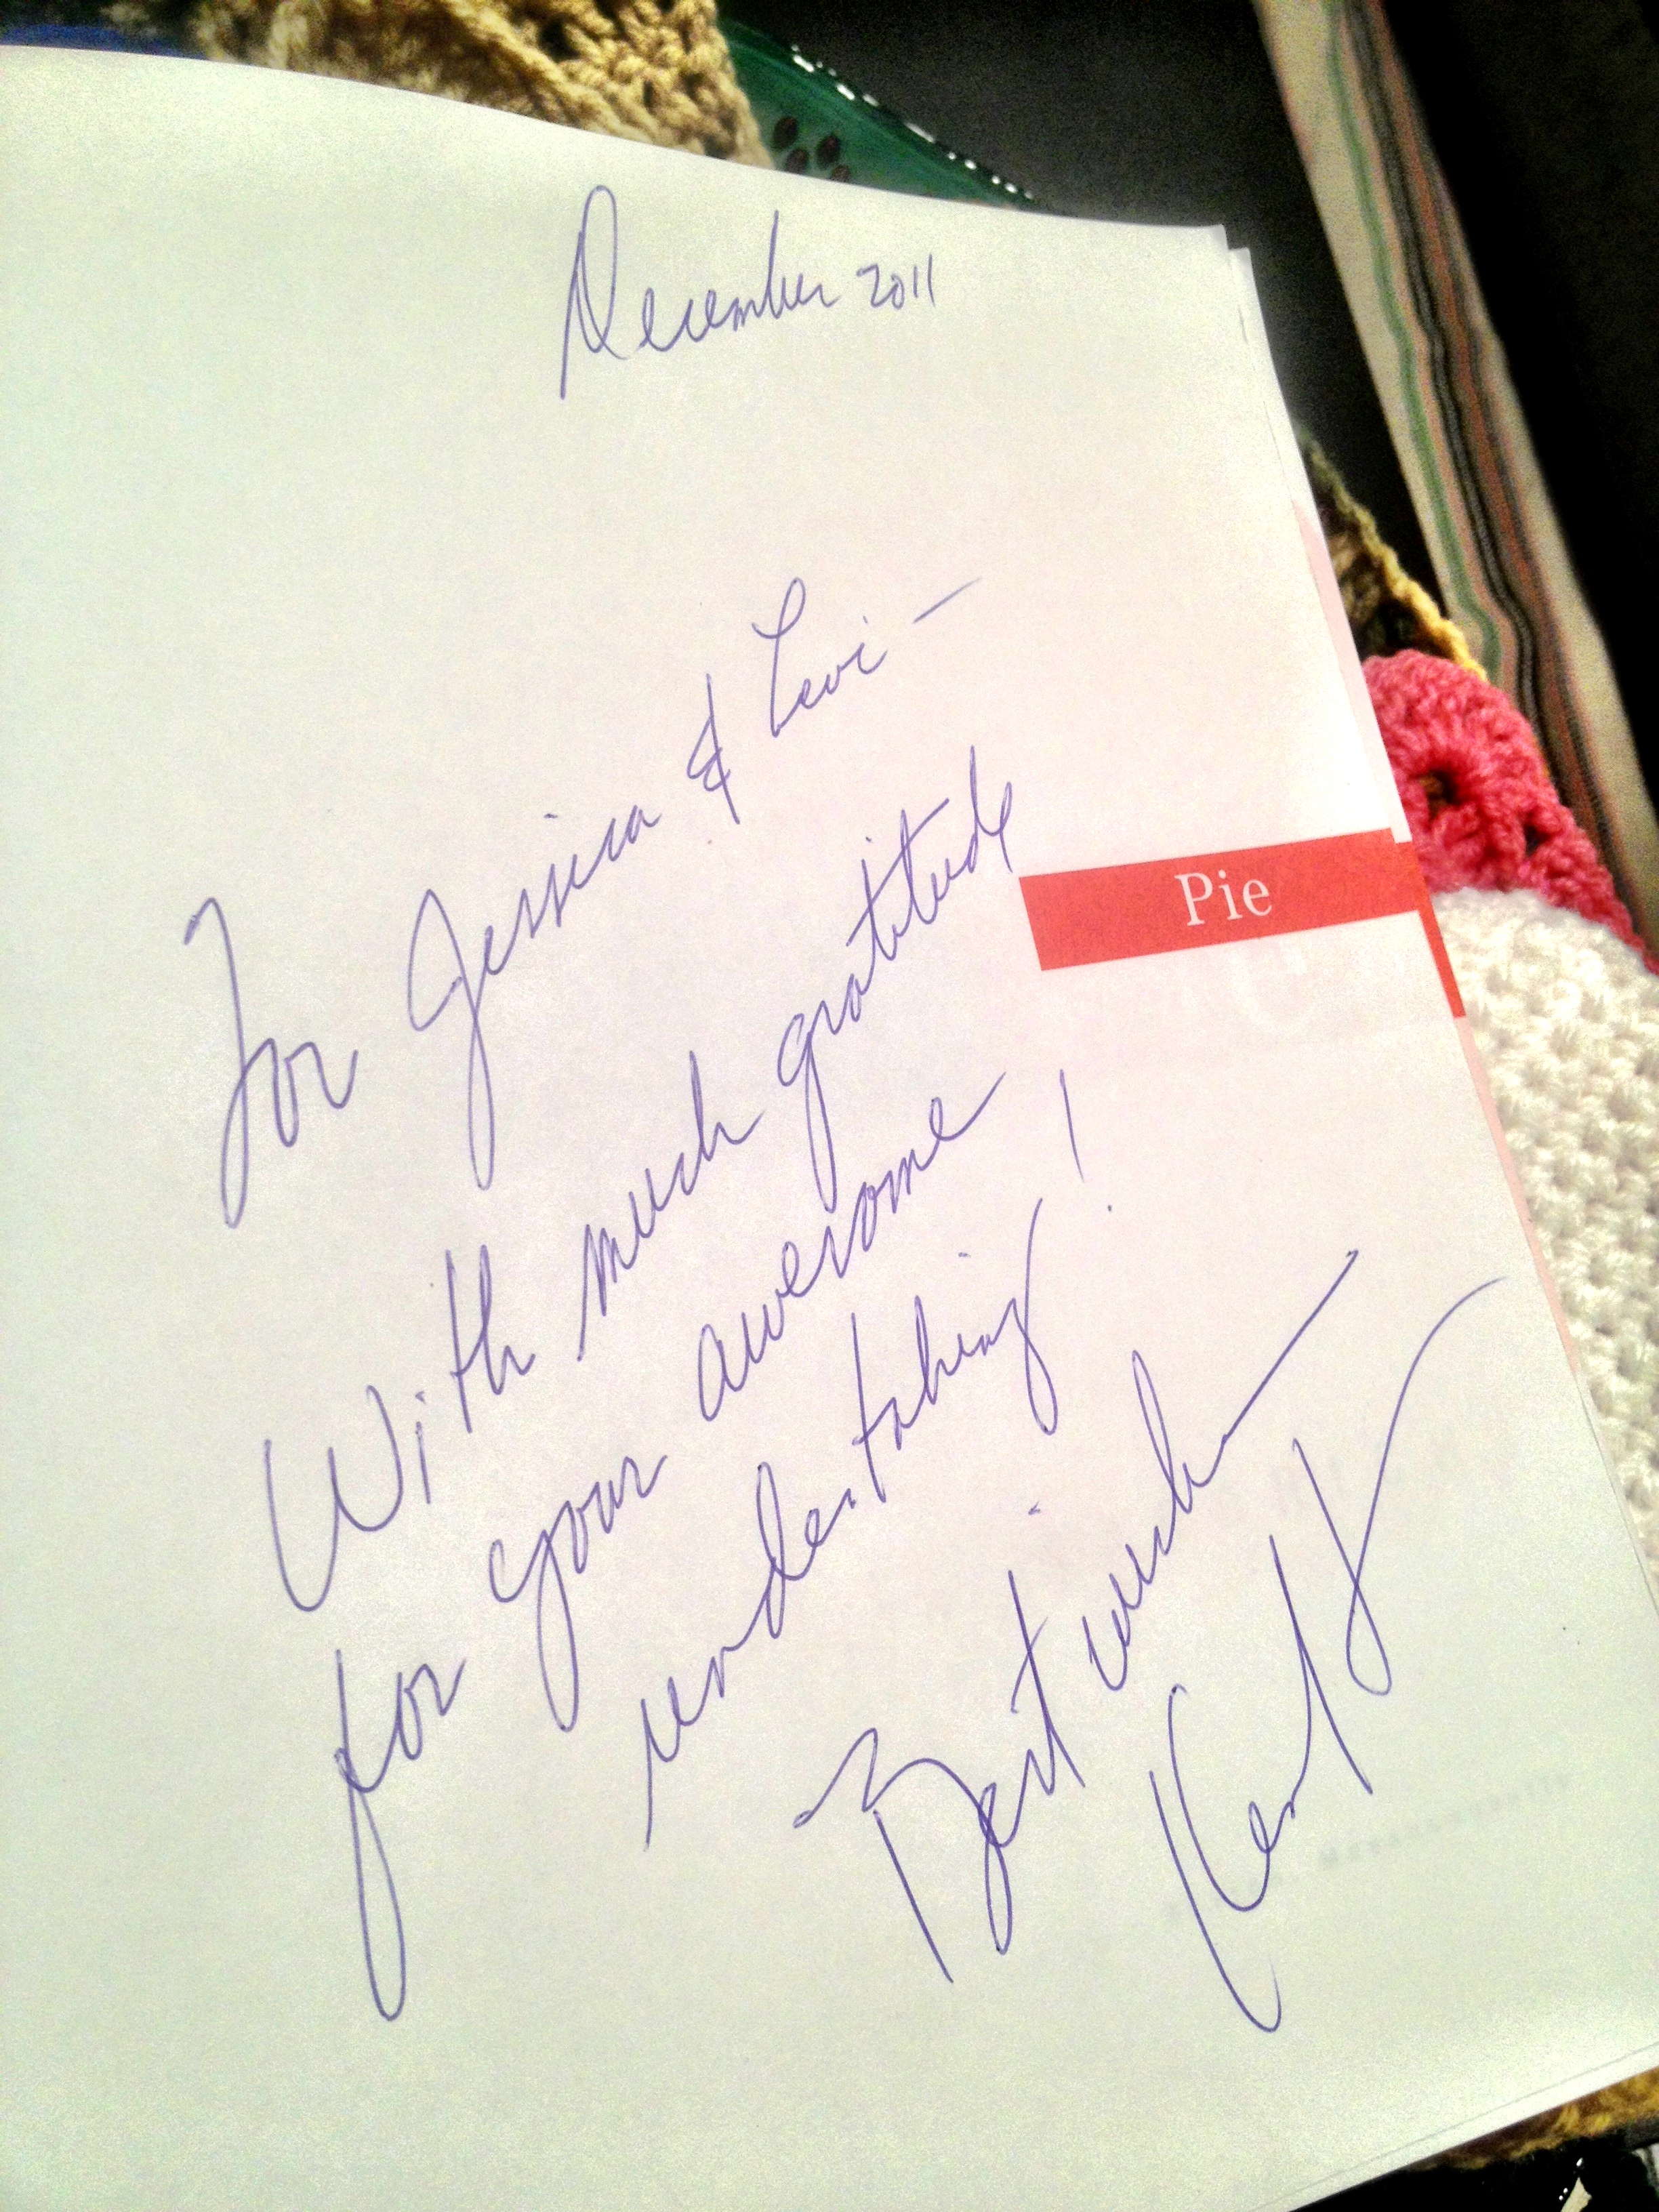 December 2011
For Jessica & Levi —
Pie
With much gratitude
for your awesome
undertaking!
Best wishes
Ken